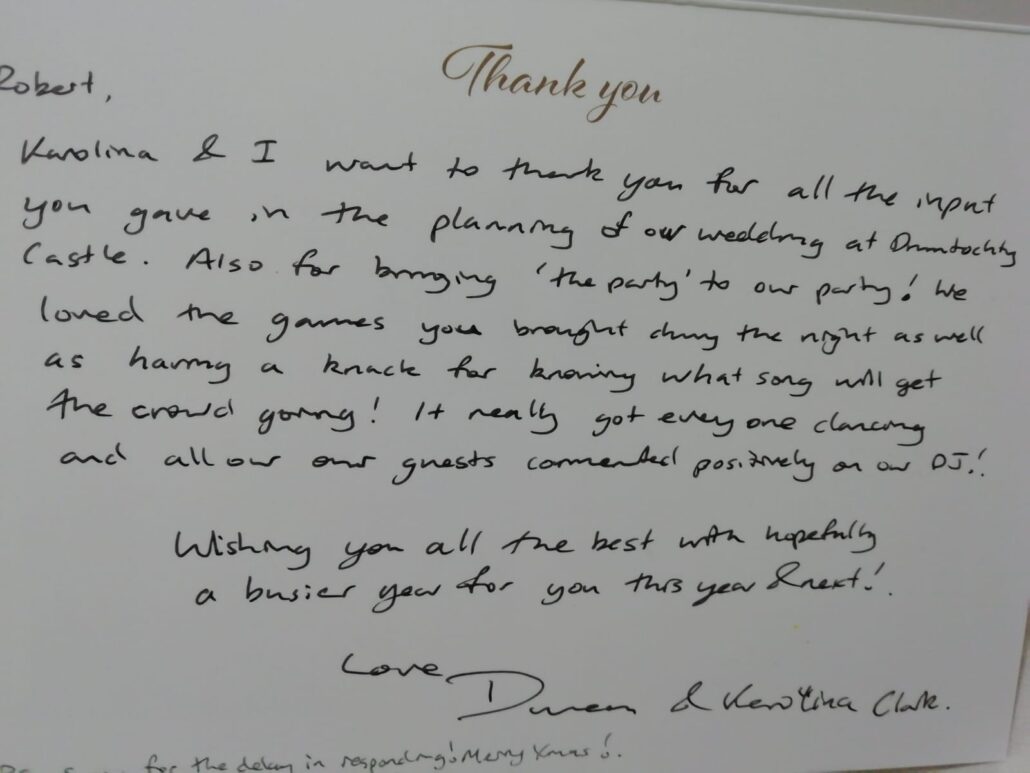 Thank you
Robert,
Karolina & I want to thank you for all the input
you gave in the planning of our wedding at Drumtochty
Castle. Also for bringing 'the party' to our party! We
loved the games you brought during the night as well
as having a knack for knowing what song will get
the crowd going! It really got everyone dancing
and all our our guests commented positively on our DJ!!
Wishing you all the best with hopefully
a busier year for you this year & next!!
Love
Duncan & Karolina Clark.
for the delay in responding! Merry Xmas!!